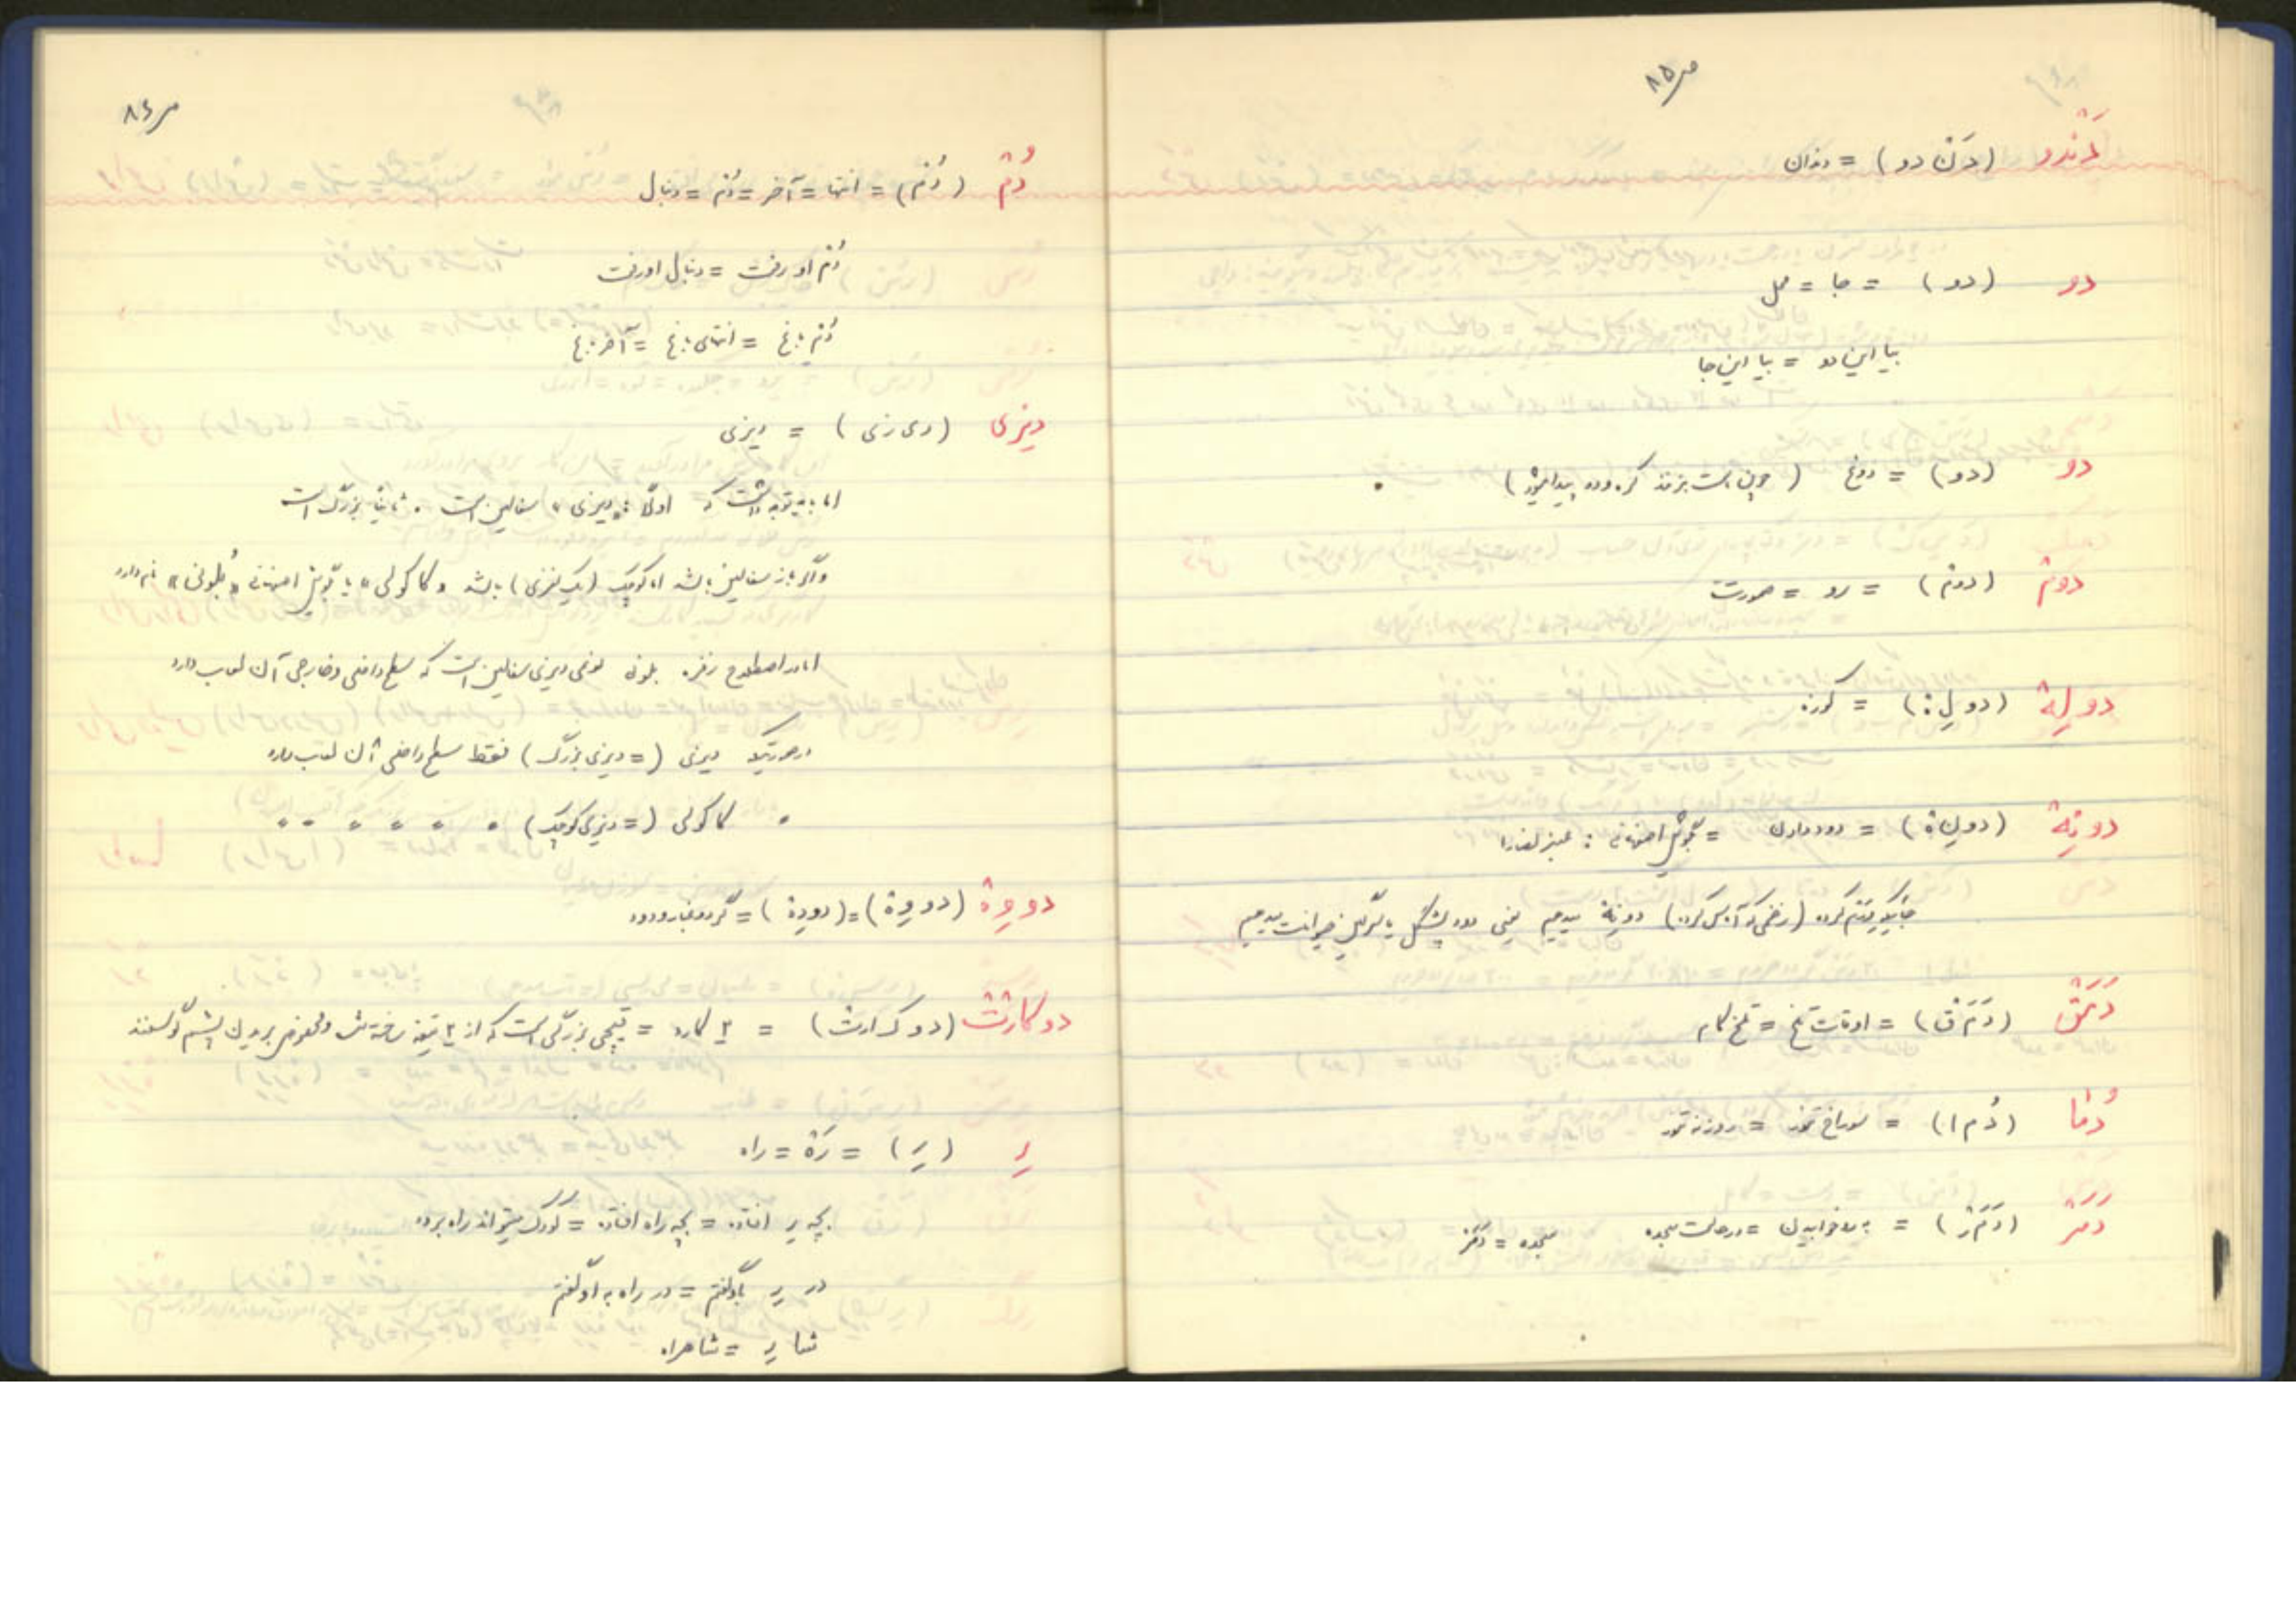 ص ۸۵
دَندو (دَن دو) = دندان
دو (دو) = جا = محل
بیا این دو = بیا این جا
دو (دو) = دوغ (چون بست بزنند کره و دو پیدا میشود)
دوم (دوم) = رو = صورت
دولِة (دولِ:) = کوزه
دونِة (دون ة) = دود دادن = بگویش اصفهانی : عنبر نصارا
جائیکه متورم کرده (زخمی که آماس کرده) دونِة میدهیم یعنی دود پشگل یا سرگین حیوانات میدهیم
دَمَق (دَمَ ق) = اوقات تلخ = تلخ کام
دُما (دُم ا) = سوراخ تنور = روزنه تنور
دَمَر (دَمَ ر) = به رو خوابیدن = در حالت سجده سجده = دَمَر
ص ۸۶
دُم (دُم) = انتها = آخر = دُم = دنبال
دُم او رفت = دنبال او رفت
دُم باغ = انتهای باغ = آخر باغ
دیزی (دی زی) = دیزی
اما باید توجه داشت که اولاً «دیزی» سفالین است . ثانیاً بزرگ است
و اگر باز سفالین باشد اما کوچک (یک نفری) باشد «کاکولی» یا بگویش اصفهانی «بُلونی» نام دارد
اما در اصطلاح نفر بلونی نوعی دیزی سفالین است که سطح داخلی و خارجی آن لعاب دارد
در صورتیکه دیزی (= دیزی بزرگ) فقط سطح داخلی آن لعاب دارد
" کاکولی (= دیزی کوچک) " " " " " "
دووِة (دو وِة) = (دودِة) = گرد و غبار و دود
دوکارت (دو ک ارت) = ۲ کارد = قیچی بزرگی است که از ۲ تیغه ساخته شده و مخصوص بریدن پشم گوسفند
رِ (رِ) = رَة = راه
بچه رِ افتاده = بچه راه افتاده = کودک میتواند راه برود
در رِ باو گفتم = در راه به او گفتم
شا رِ = شاهراه